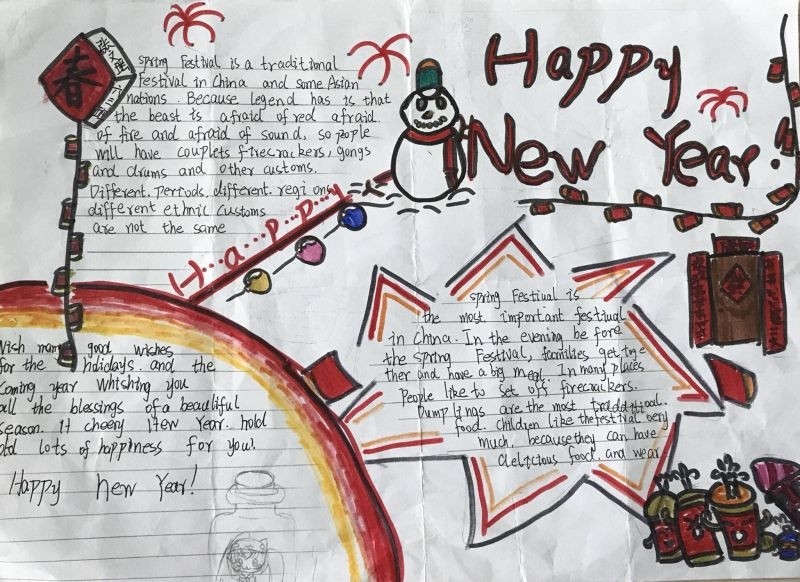 Happy
New Year.
春
spring Festival is a traditional
Festival in China and some Asian
nations. Because legend has is that
the beast is afraid of red afraid.
of fire and afraid of sound, so people
will have couplets firecrackers, gongs
and drums and other customs.
Different. periods. different. regions
different ethnic customs
are not the same
H...a...p...p...y
Wish many good wishes
for the holidays. and the
coming year whishing you
all the blessings of a beautiful
season. it cheery new Year. hold
lots of happiness for you!.
Happy new Year!
spring Festival is
the most important festival
in China. In the evening before
the spring Festival, families get toge
ther and have a big meal. In many places
People like to set off firecrackers.
Dumplings are the most traddittioal.
food. children like the festival very
much. because they can have
delicious food. and wear